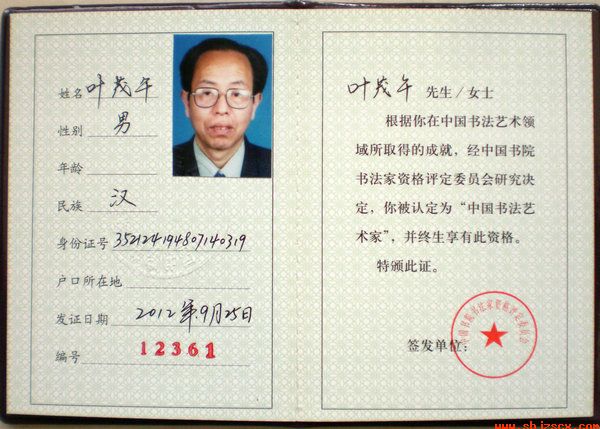 姓名 叶茂午
性别 男
年龄
民族 汉
身份证号 352124194807140319
户口所在地
发证日期 2012年9月25日
编号 12361
叶茂午 先生/女士
根据你在中国书法艺术领
域所取得的成就，经中国书院
书法家资格评定委员会研究决
定，你被认定为“中国书法艺
术家”，并终生享有此资格。
特颁此证。
签发单位：
中国书院书法家资格评定委员会
www.shjzscx.com